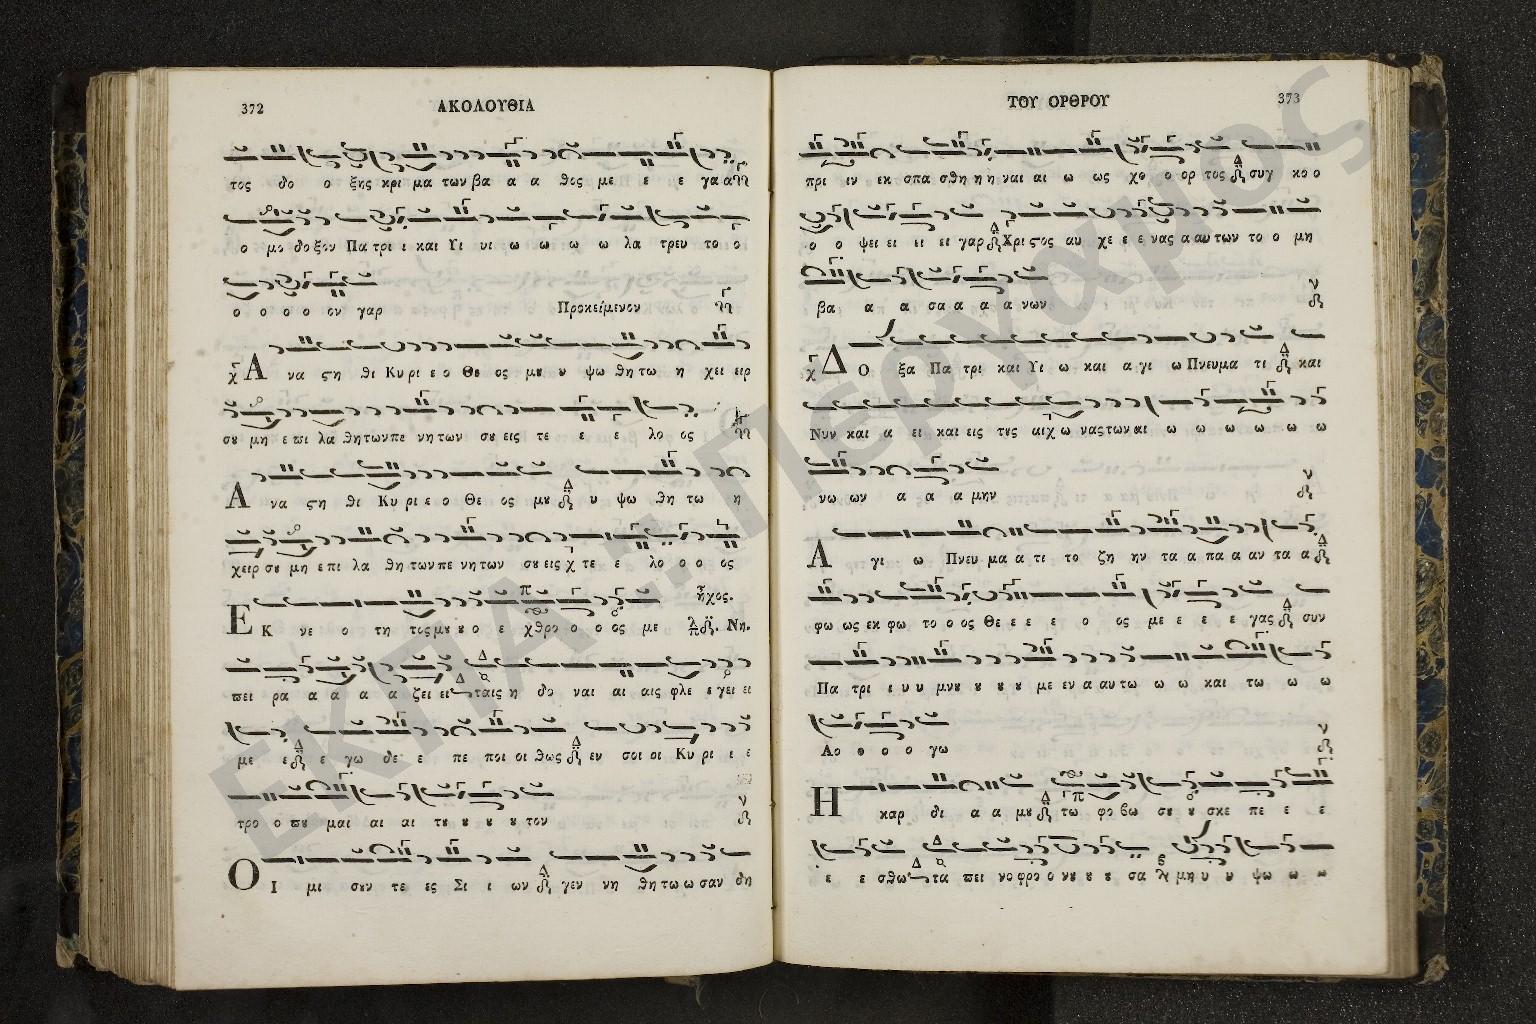 372 ΑΚΟΛΟΥΘΙΑ
τος δο ο ξης κρι μα των βα α α θος με ε ε γα α
ο μο δοξον Πα τρι ι και Υι υι ω ω ω ω λα τρευ το ο
ο ο ο ο ον γαρ Προκείμενον
Α να στη θι Κυ ρι ε ο Θε ος μου υ ψω θη τω η χει ειρ
σου μη ε πι λα θη των πε νη των σου εις τε ε ε λο ος
Α να στη θι Κυ ρι ε ο Θε ος μου υ ψω θη τω η
χειρ σου μη ε πι λα θη των πε νη των σου εις τε ε λο ο ο ος
ἦχος.
Ε Κ νε ο τη τος μου ου ο ε χθρο ο ο ος με Νη.
πει ρα α α α α ζει ει ταις η δο ναι αι αις φλε ε γει ει
με ε ε γω δε ε πε ποι οι θως εν σοι οι Κυ ρι ι ε
τρο ο που μαι αι αι του ου ου ου τον
Ο Ι μι σουν τε ες Σι ι ων γεν νη θη τω ω σαν δη
ΤΟΥ ΟΡΘΡΟΥ 373
πρι ιν εκ σπα σθη η η ναι αι ω ως χο ο ορ τος συγ κο ο
ο ο ψει ει ει ει γαρ Χρι στος αυ χε ε ε νας α αυ των το ο μη
βα α α σα α α α νων
Δ Ο ξα Πα τρι και Υι ω και α γι ω Πνευμα τι και
Νυν και α ει και εις τους αι ω νας των αι ω ω ω ω ω ω
νω ων α α α μην
Α γι ω Πνευ μα α τι το ζη ην τα α πα α αν τα α
φω ως εκ φω το ο ος Θε ε ε ε ο ος με ε ε ε γας συν
Πα τρι ι υ υ μνου ου ου ου με εν α αυ τω ω ω και τω ω ω
Λο ο ο ο γω
Η καρ δι α α μου τω φο βω σου ου σκε πε ε ε
ε ε σθω τα πει νο φρο ο νου ου ου σα μη υ υ ψω ω ω
ΕΚΠΑ: Περγαμος